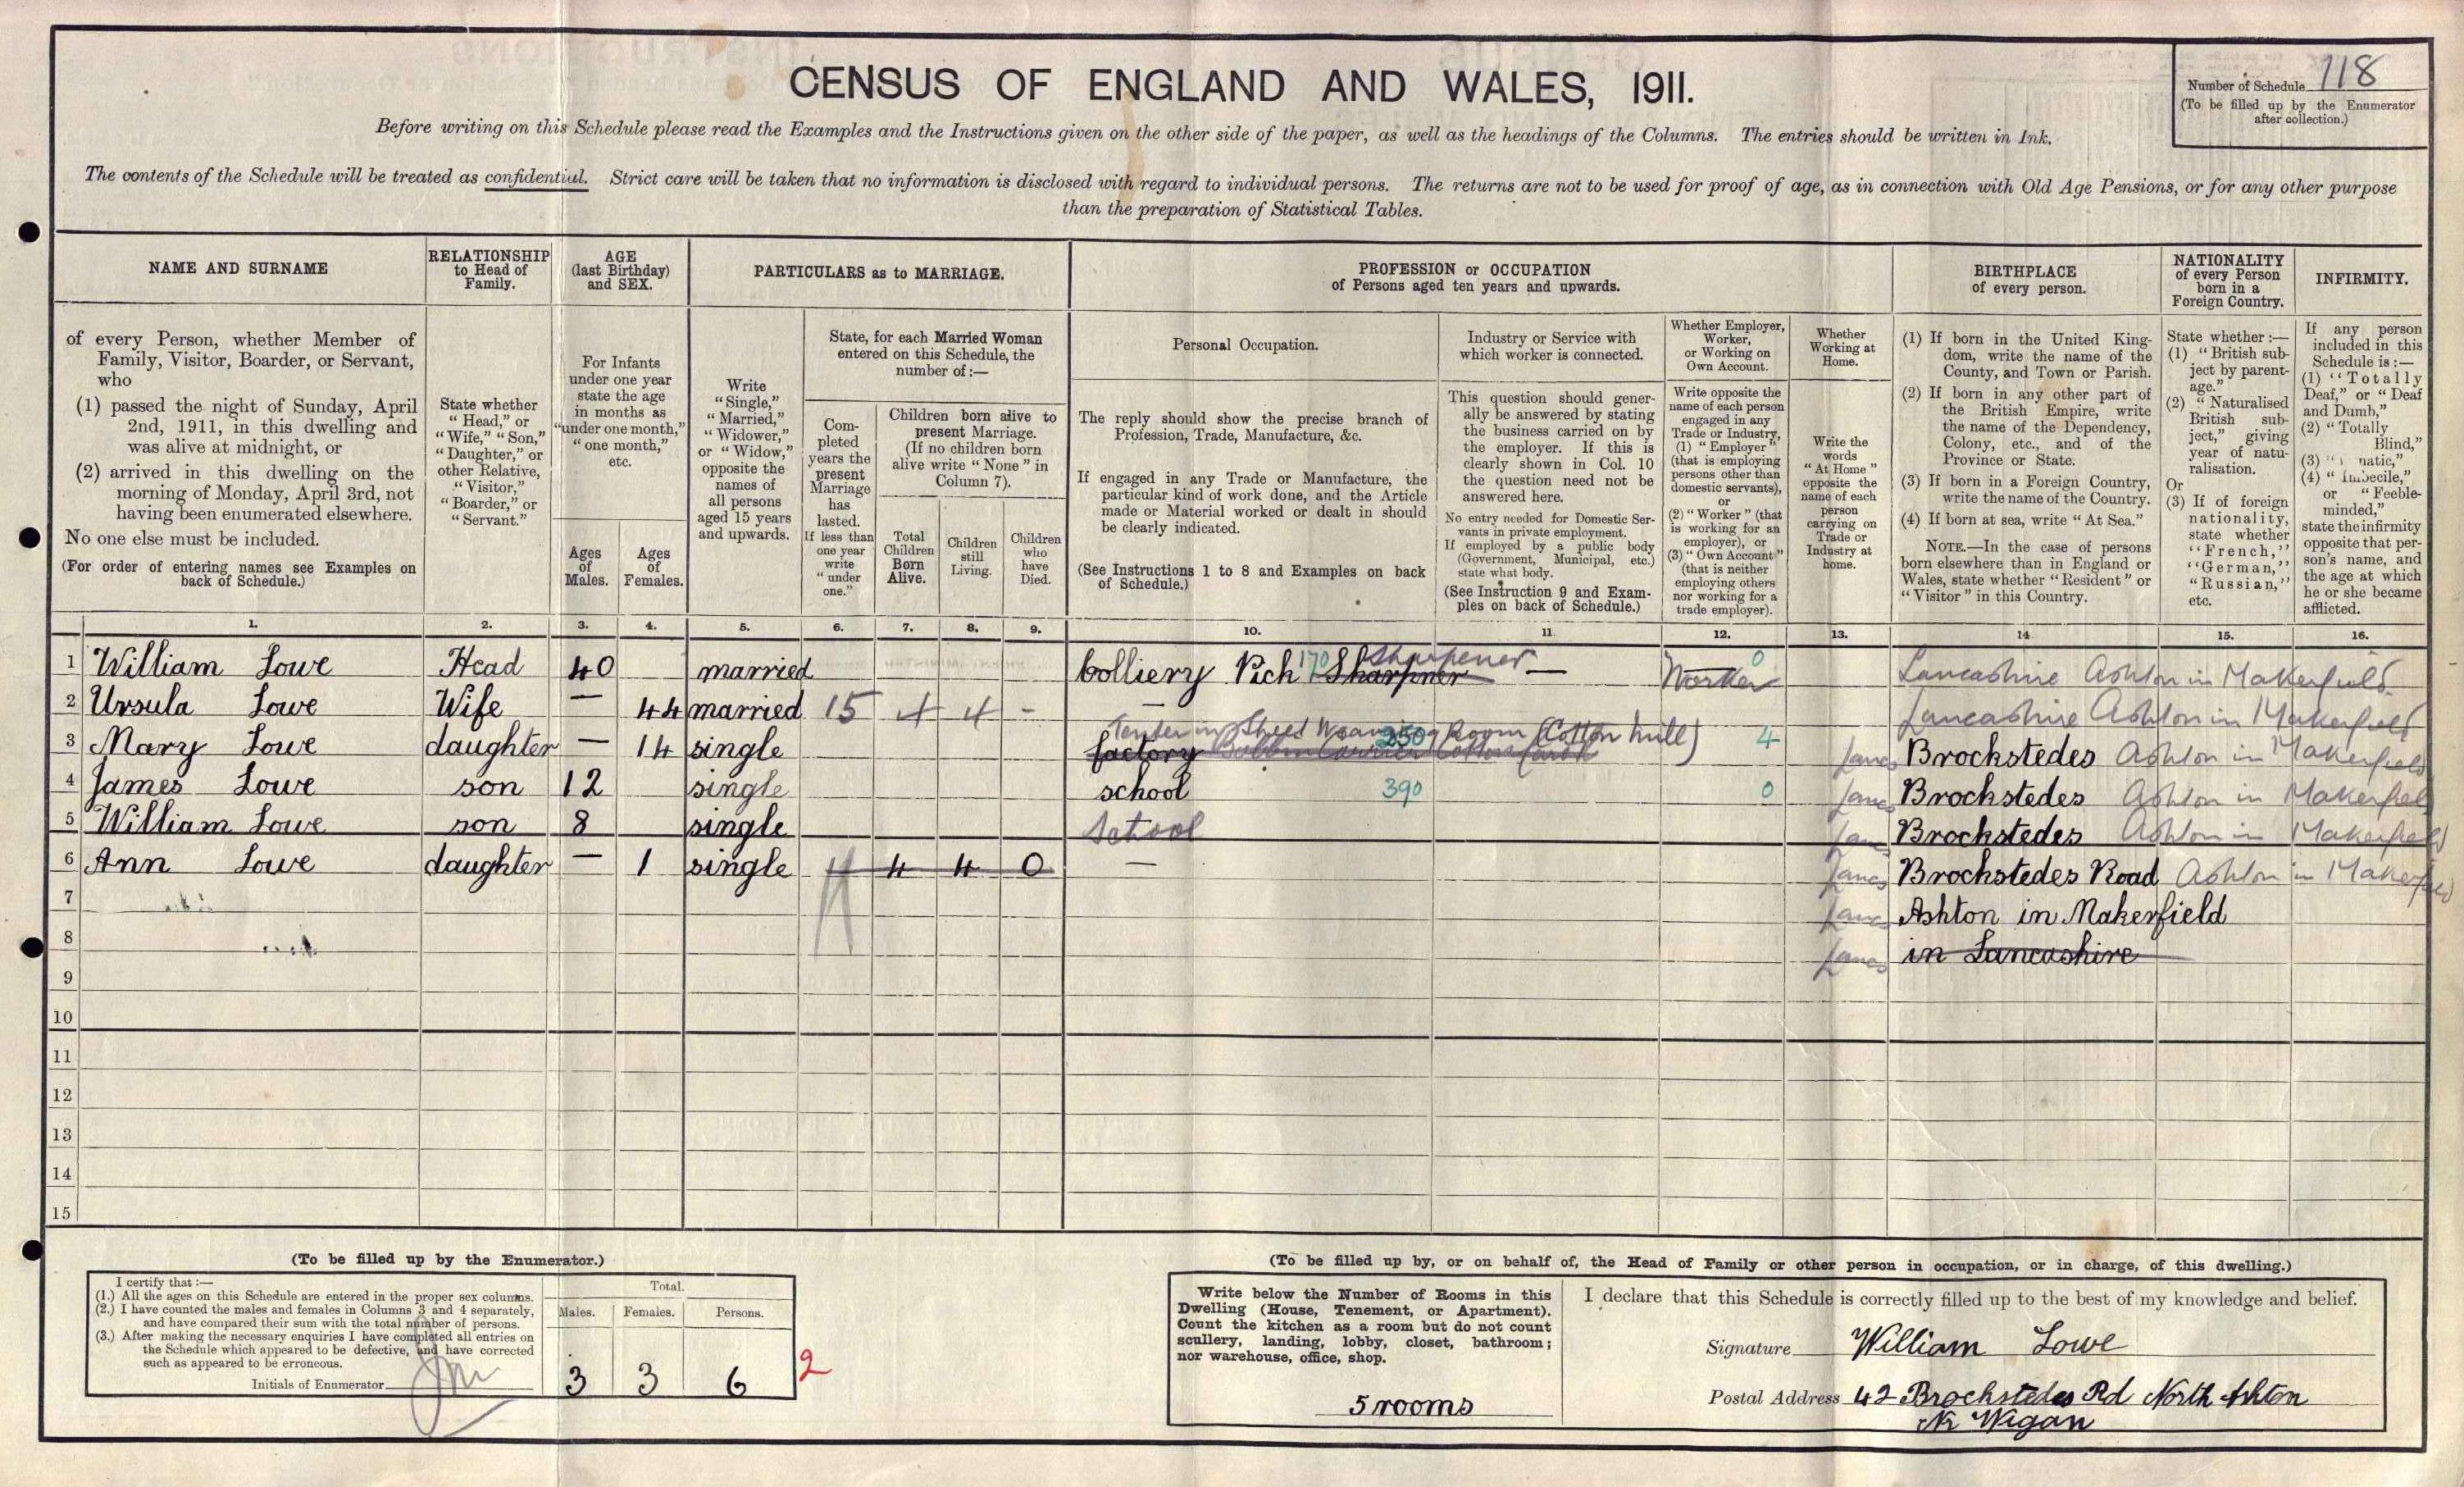 CENSUS OF ENGLAND AND WALES, 1911.
Number of Schedule 118
(To be filled up by the Enumerator
after collection.)
Before writing on this Schedule please read the Examples and the Instructions given on the other side of the paper, as well as the headings of the Columns. The entries should be written in Ink.
The contents of the Schedule will be treated as confidential. Strict care will be taken that no information is disclosed with regard to individual persons. The returns are not to be used for proof of age, as in connection with Old Age Pensions, or for any other purpose
than the preparation of Statistical Tables.
NAME AND SURNAME
of every Person, whether Member of
Family, Visitor, Boarder, or Servant,
who
(1) passed the night of Sunday, April
2nd, 1911, in this dwelling and
was alive at midnight, or
(2) arrived in this dwelling on the
morning of Monday, April 3rd, not
having been enumerated elsewhere.
No one else must be included.
(For order of entering names see Examples on
back of Schedule.)
RELATIONSHIP
to Head of
Family.
State whether
"Head," or
"Wife," "Son,"
"Daughter," or
other Relative,
"Visitor,"
"Boarder," or
"Servant."
AGE
(last Birthday)
and SEX.
For Infants
under one year
state the age
in months as
"under one month,"
"one month,"
etc.
Ages
of
Males.
Ages
of
Females.
PARTICULARS as to MARRIAGE.
Write
"Single,"
"Married,"
"Widower,"
or "Widow,"
opposite the
names of
all persons
aged 15 years
and upwards.
State, for each Married Woman
entered on this Schedule, the
number of :—
Com-
pleted
years the
present
Marriage
has
lasted.
If less than
one year
write
"under
one."
Children born alive to
present Marriage.
(If no children born
alive write "None" in
Column 7).
Total
Children
Born
Alive.
Children
still
Living.
Children
who
have
Died.
PROFESSION or OCCUPATION
of Persons aged ten years and upwards.
Personal Occupation.
The reply should show the precise branch of
Profession, Trade, Manufacture, &c.
If engaged in any Trade or Manufacture, the
particular kind of work done, and the Article
made or Material worked or dealt in should
be clearly indicated.
(See Instructions 1 to 8 and Examples on back
of Schedule.)
Industry or Service with
which worker is connected.
This question should gener-
ally be answered by stating
the business carried on by
the employer. If this is
clearly shown in Col. 10
the question need not be
answered here.
No entry needed for Domestic Ser-
vants in private employment.
If employed by a public body
(Government, Municipal, etc.)
state what body.
(See Instruction 9 and Exam-
ples on back of Schedule.)
Whether Employer,
Worker,
or Working on
Own Account.
Write opposite the
name of each person
engaged in any
Trade or Industry,
(1) "Employer"
(that is employing
persons other than
domestic servants),
or
(2) "Worker" (that
is working for an
employer), or
(3) "Own Account"
(that is neither
employing others
nor working for a
trade employer).
Whether
Working at
Home.
Write the
words
"At Home"
opposite the
name of each
person
carrying on
Trade or
Industry at
home.
BIRTHPLACE
of every person.
(1) If born in the United King-
dom, write the name of the
County, and Town or Parish.
(2) If born in any other part of
the British Empire, write
the name of the Dependency,
Colony, etc., and of the
Province or State.
(3) If born in a Foreign Country,
write the name of the Country.
(4) If born at sea, write "At Sea."
NOTE.—In the case of persons
born elsewhere than in England or
Wales, state whether "Resident" or
"Visitor" in this Country.
NATIONALITY
of every Person
born in a
Foreign Country.
State whether :—
(1) "British sub-
ject by parent-
age."
(2) "Naturalised
British sub-
ject," giving
year of natu-
ralisation.
Or
(3) If of foreign
nationality,
state whether
"French,"
"German,"
"Russian,"
etc.
INFIRMITY.
If any person
included in this
Schedule is :—
(1) "Totally
Deaf," or "Deaf
and Dumb,"
(2) "Totally
Blind,"
(3) natic,"
(4) "Imbecile,"
or "Feeble-
minded,"
state the infirmity
opposite that per-
son's name, and
the age at which
he or she became
afflicted.
1. 2. 3. 4. 5. 6. 7. 8. 9. 10. 11 12. 13. 14 15. 16.
Sharpener
1 William Lowe Head 40 married Colliery Pick 170 Sharpner — Worker 0 Lancashire Ashton in Makerfield
2 Ursula Lowe Wife — 44 married 15 4 4 - — Lancashire Ashton in Makerfield
Tenter in Room (Cotton Mill)
3 Mary Lowe daughter — 14 single factory 250 4 Lancs Brockstedes Ashton in Makerfield
4 James Lowe son 12 single school 390 0 Lancs Brockstedes Ashton in Makerfield
5 William Lowe son 8 single School Lancs Brockstedes Ashton in Makerfield
6 Ann Lowe daughter — 1 single 4 4 0 — Lancs Brockstedes Road Ashton in Makerfield
7 Lancs Ashton in Makerfield
8 Lancs in Lancashire
9
10
11
12
13
14
15
(To be filled up by the Enumerator.)
I certify that :—
(1.) All the ages on this Schedule are entered in the proper sex columns.
(2.) I have counted the males and females in Columns 3 and 4 separately,
and have compared their sum with the total number of persons.
(3.) After making the necessary enquiries I have completed all entries on
the Schedule which appeared to be defective, and have corrected
such as appeared to be erroneous.
Initials of Enumerator
Total.
Males. Females. Persons.
3 3 6 2
(To be filled up by, or on behalf of, the Head of Family or other person in occupation, or in charge, of this dwelling.)
Write below the Number of Rooms in this
Dwelling (House, Tenement, or Apartment).
Count the kitchen as a room but do not count
scullery, landing, lobby, closet, bathroom;
nor warehouse, office, shop.
5 rooms
I declare that this Schedule is correctly filled up to the best of my knowledge and belief.
Signature William Lowe
Postal Address 42 Brockstedes Rd North Ashton
Nr Wigan